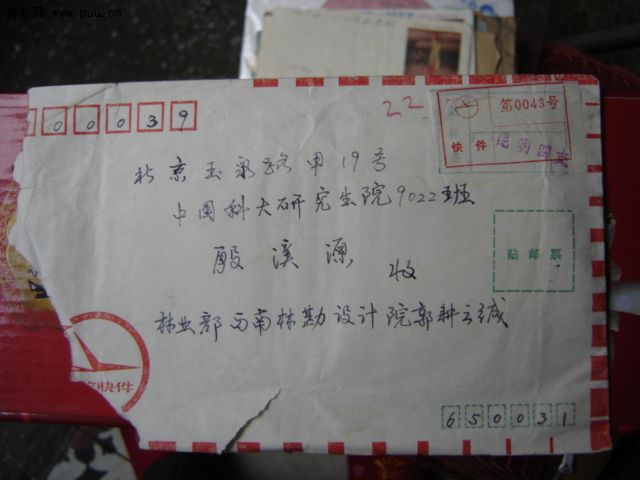 www.puu.cn
22
第0043号
快件
000039
北京玉泉路甲19号
中国科大研究生院9022班
殷溪源 收
贴邮票
林业部西南林勘设计院郭耕云缄
快件
650031